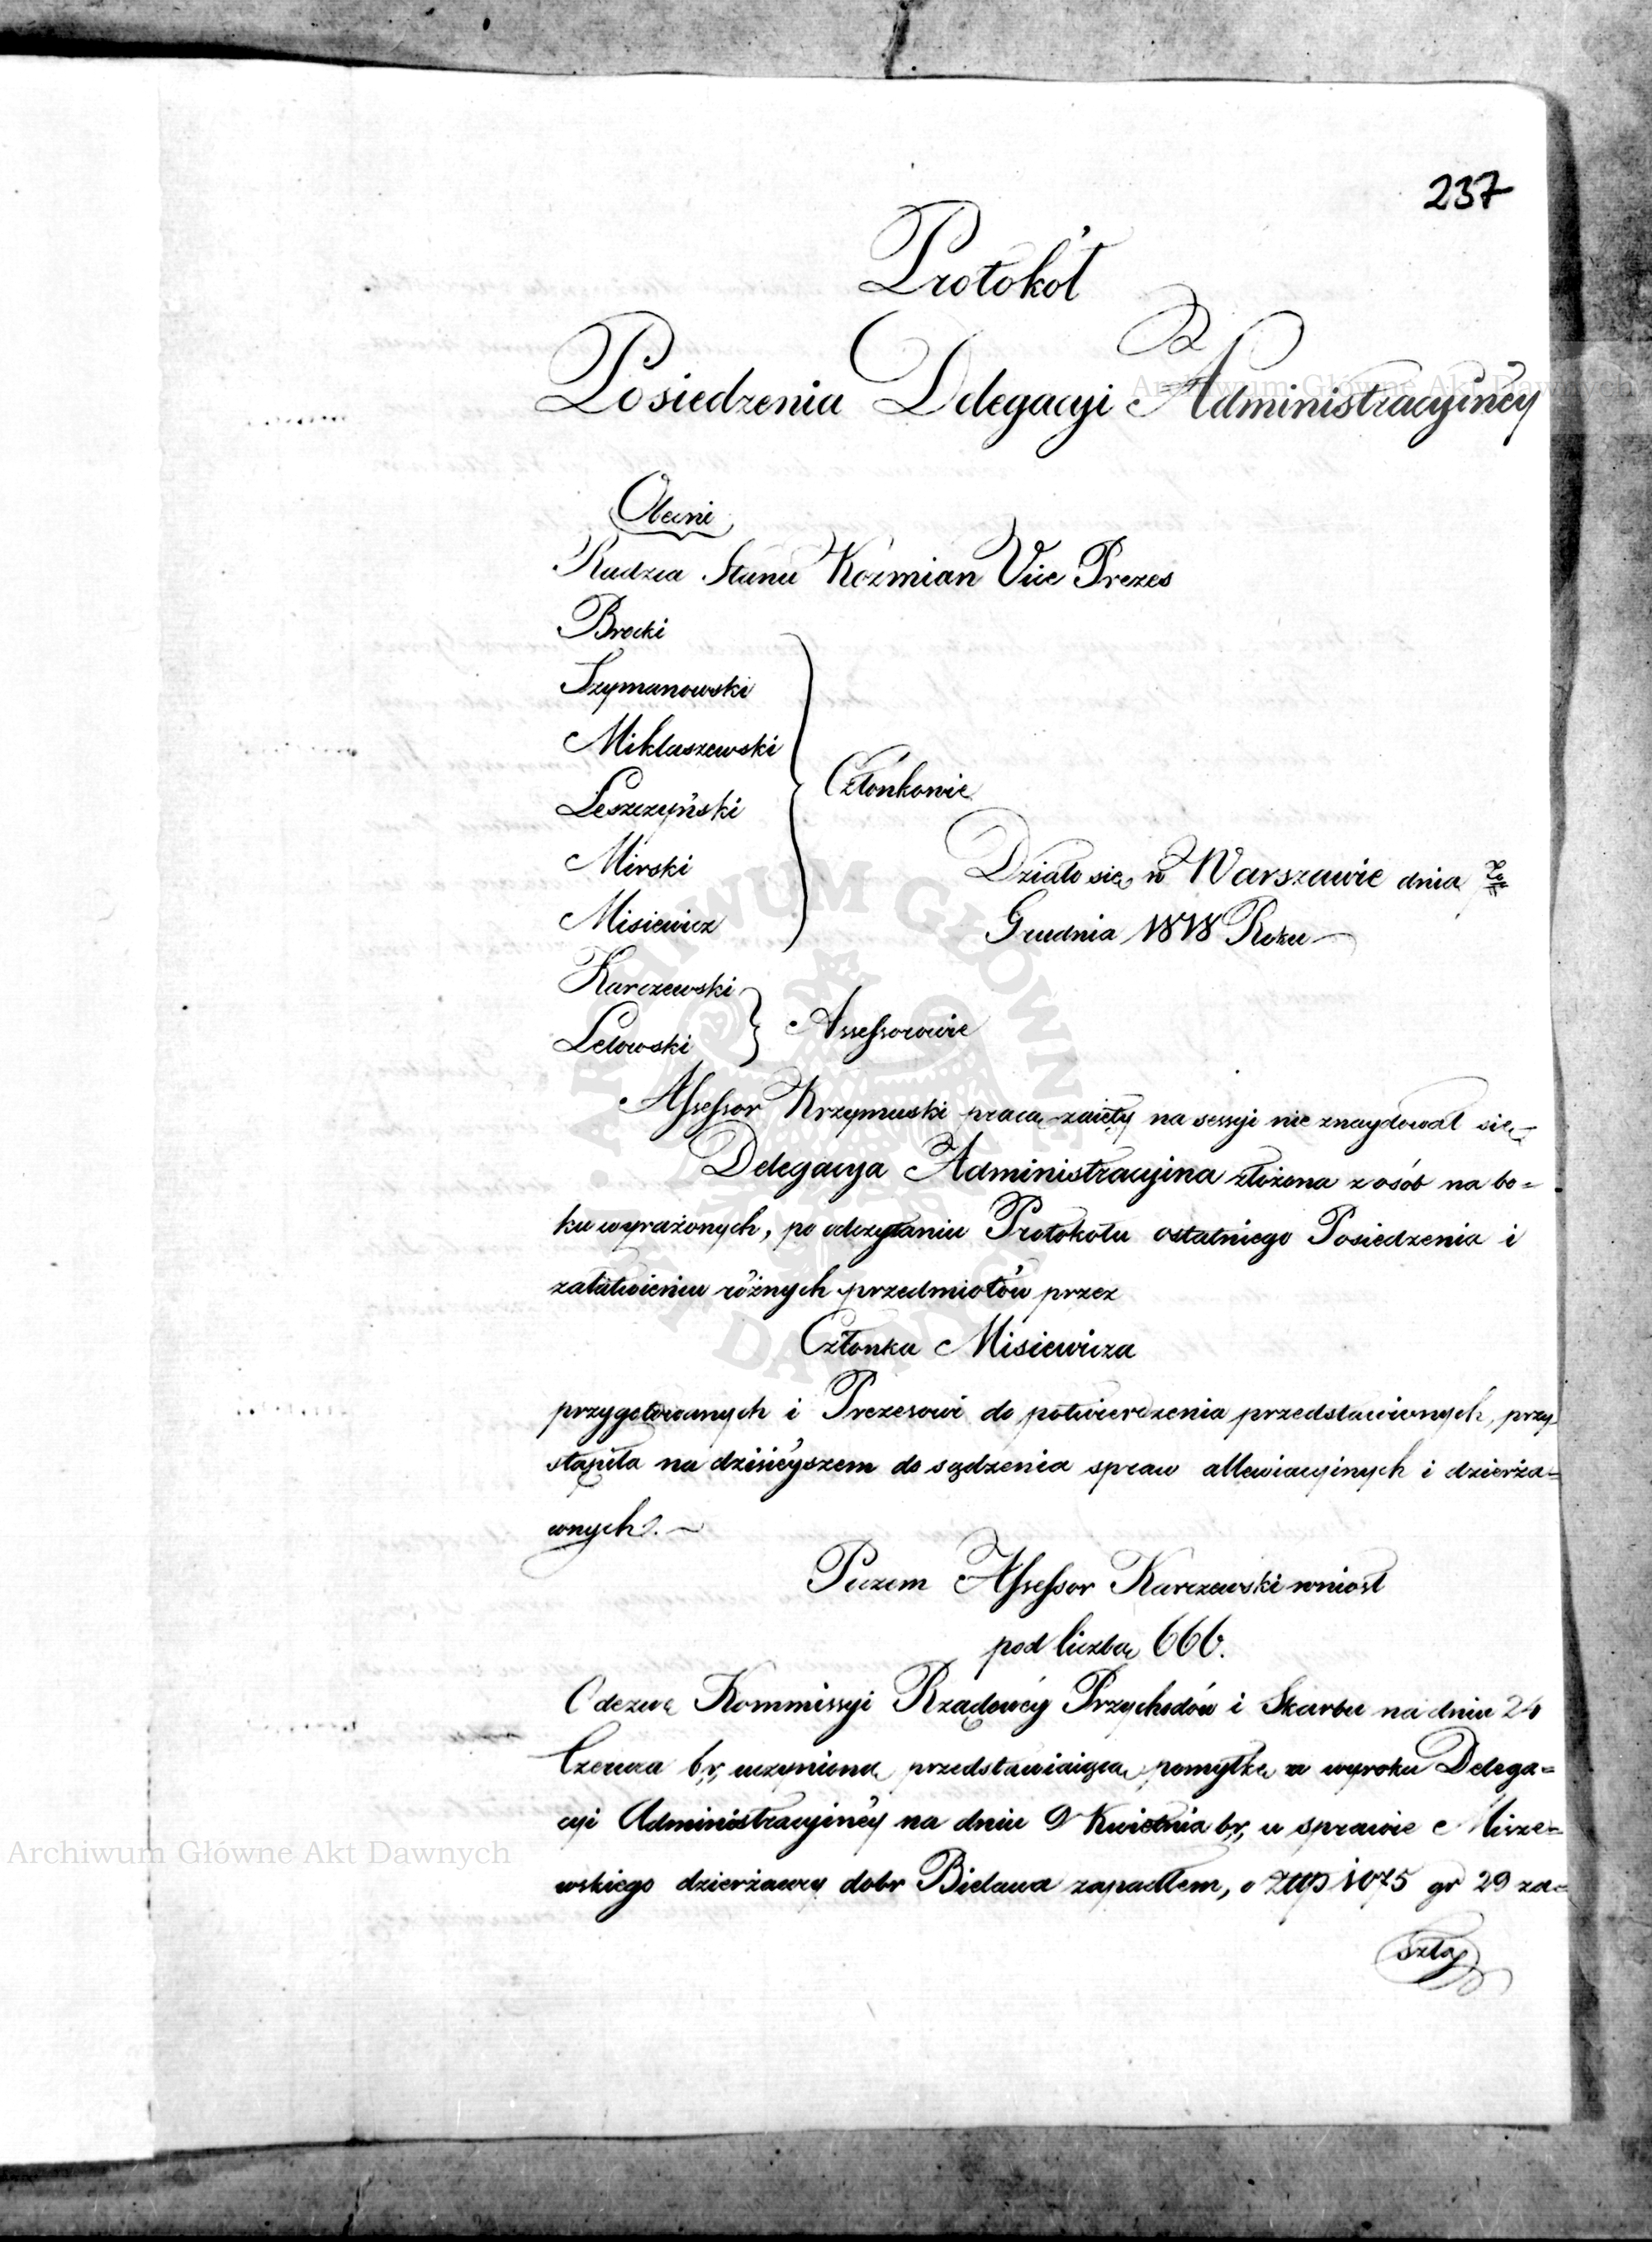 237
Protokół
Posiedzenia Delegacyi Administracyinéy
Obecni
Radzca Stanu Koźmian Vice Prezes
Brocki
Szymanowski
Miklaszewski
Leszczyński
Mirski
Misiewicz
Członkowie
Działo się w Warszawie dnia
Grudnia 1818 Roku
Karczewski
Lelowski
Assessorowie
Assessor Krzymuski pracą zaięty na sessyi nie znaydował się
Delegacya Administracyina złożona z osób na bo=
ku wyrażonych, po odczytaniu Protokołu ostatniego Posiedzenia i
załatwieniu różnych przedmiotów przez
Członka Misiewicza
przygotowanych i Prezesowi do potwierdzenia przedstawionych, przy
stąpiła na dzisieyszem do sądzenia spraw allewiacyinych i dzierża=
wnych. —
Poczem Assessor Karczewski wniosł
pod liczbą 666.
Odezwę Kommissyi Rządowéy Przychodów i Skarbu na dniu 24
Czerwca b,r, uczynioną przedstawiaiącą pomyłkę w wyroku Delega=
cyi Administracyinéy na dniu 9 Kwietnia b,r, w sprawie Misze=
wskiego dzierżawcy dobr Bielawa zapadłem, o złłp 1075 gr 29 za=
szłą
Archiwum Główne Akt Dawnych
Archiwum Główne Akt Dawnych
ARCHIWUM GŁÓWNE AKT DAWNYCH